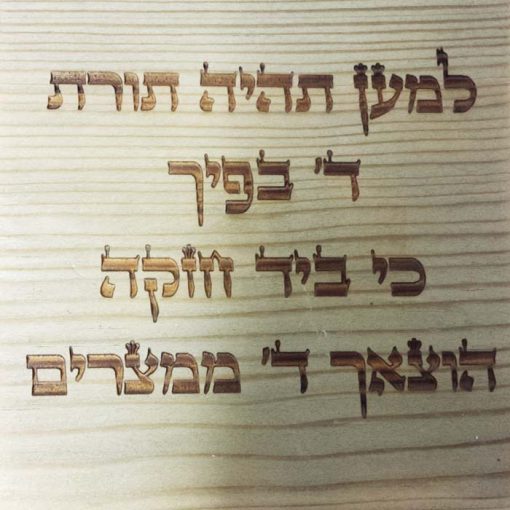 למען תהיה תורת
ד' בפיך
כי ביד חזקה
הוצאך ד' ממצרים